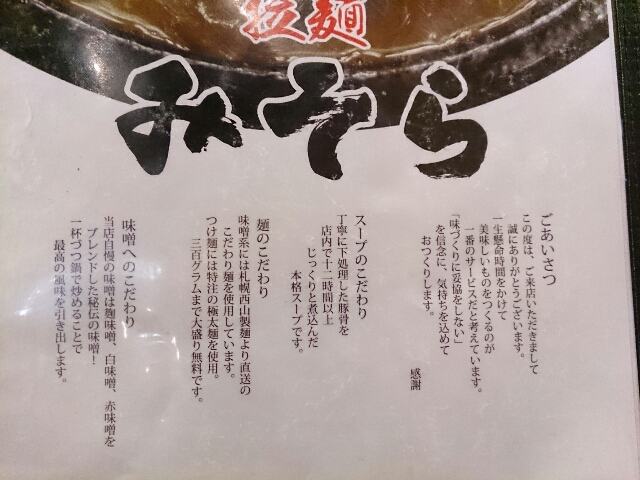 拉麺
みそら
ごあいさつ
この度は、ご来店いただきまして
誠にありがとうございます。
一生懸命時間をかけて
美味しいものをつくるのが
一番のサービスだと考えています。
「味づくりに妥協をしない」
を信念に、気持ちを込めて
おつくりします。
感謝
スープのこだわり
丁寧に下処理した豚骨を
店内で十二時間以上
じっくりと煮込んだ
本格スープです。
麺のこだわり
味噌系には札幌西山製麺より直送の
こだわり麺を使用しています。
つけ麺には特注の極太麺を使用。
三百グラムまで大盛り無料です。
味噌へのこだわり
当店自慢の味噌は麹味噌、白味噌、赤味噌を
ブレンドした秘伝の味噌！
一杯づつ鍋で炒めることで
最高の風味を引き出します。